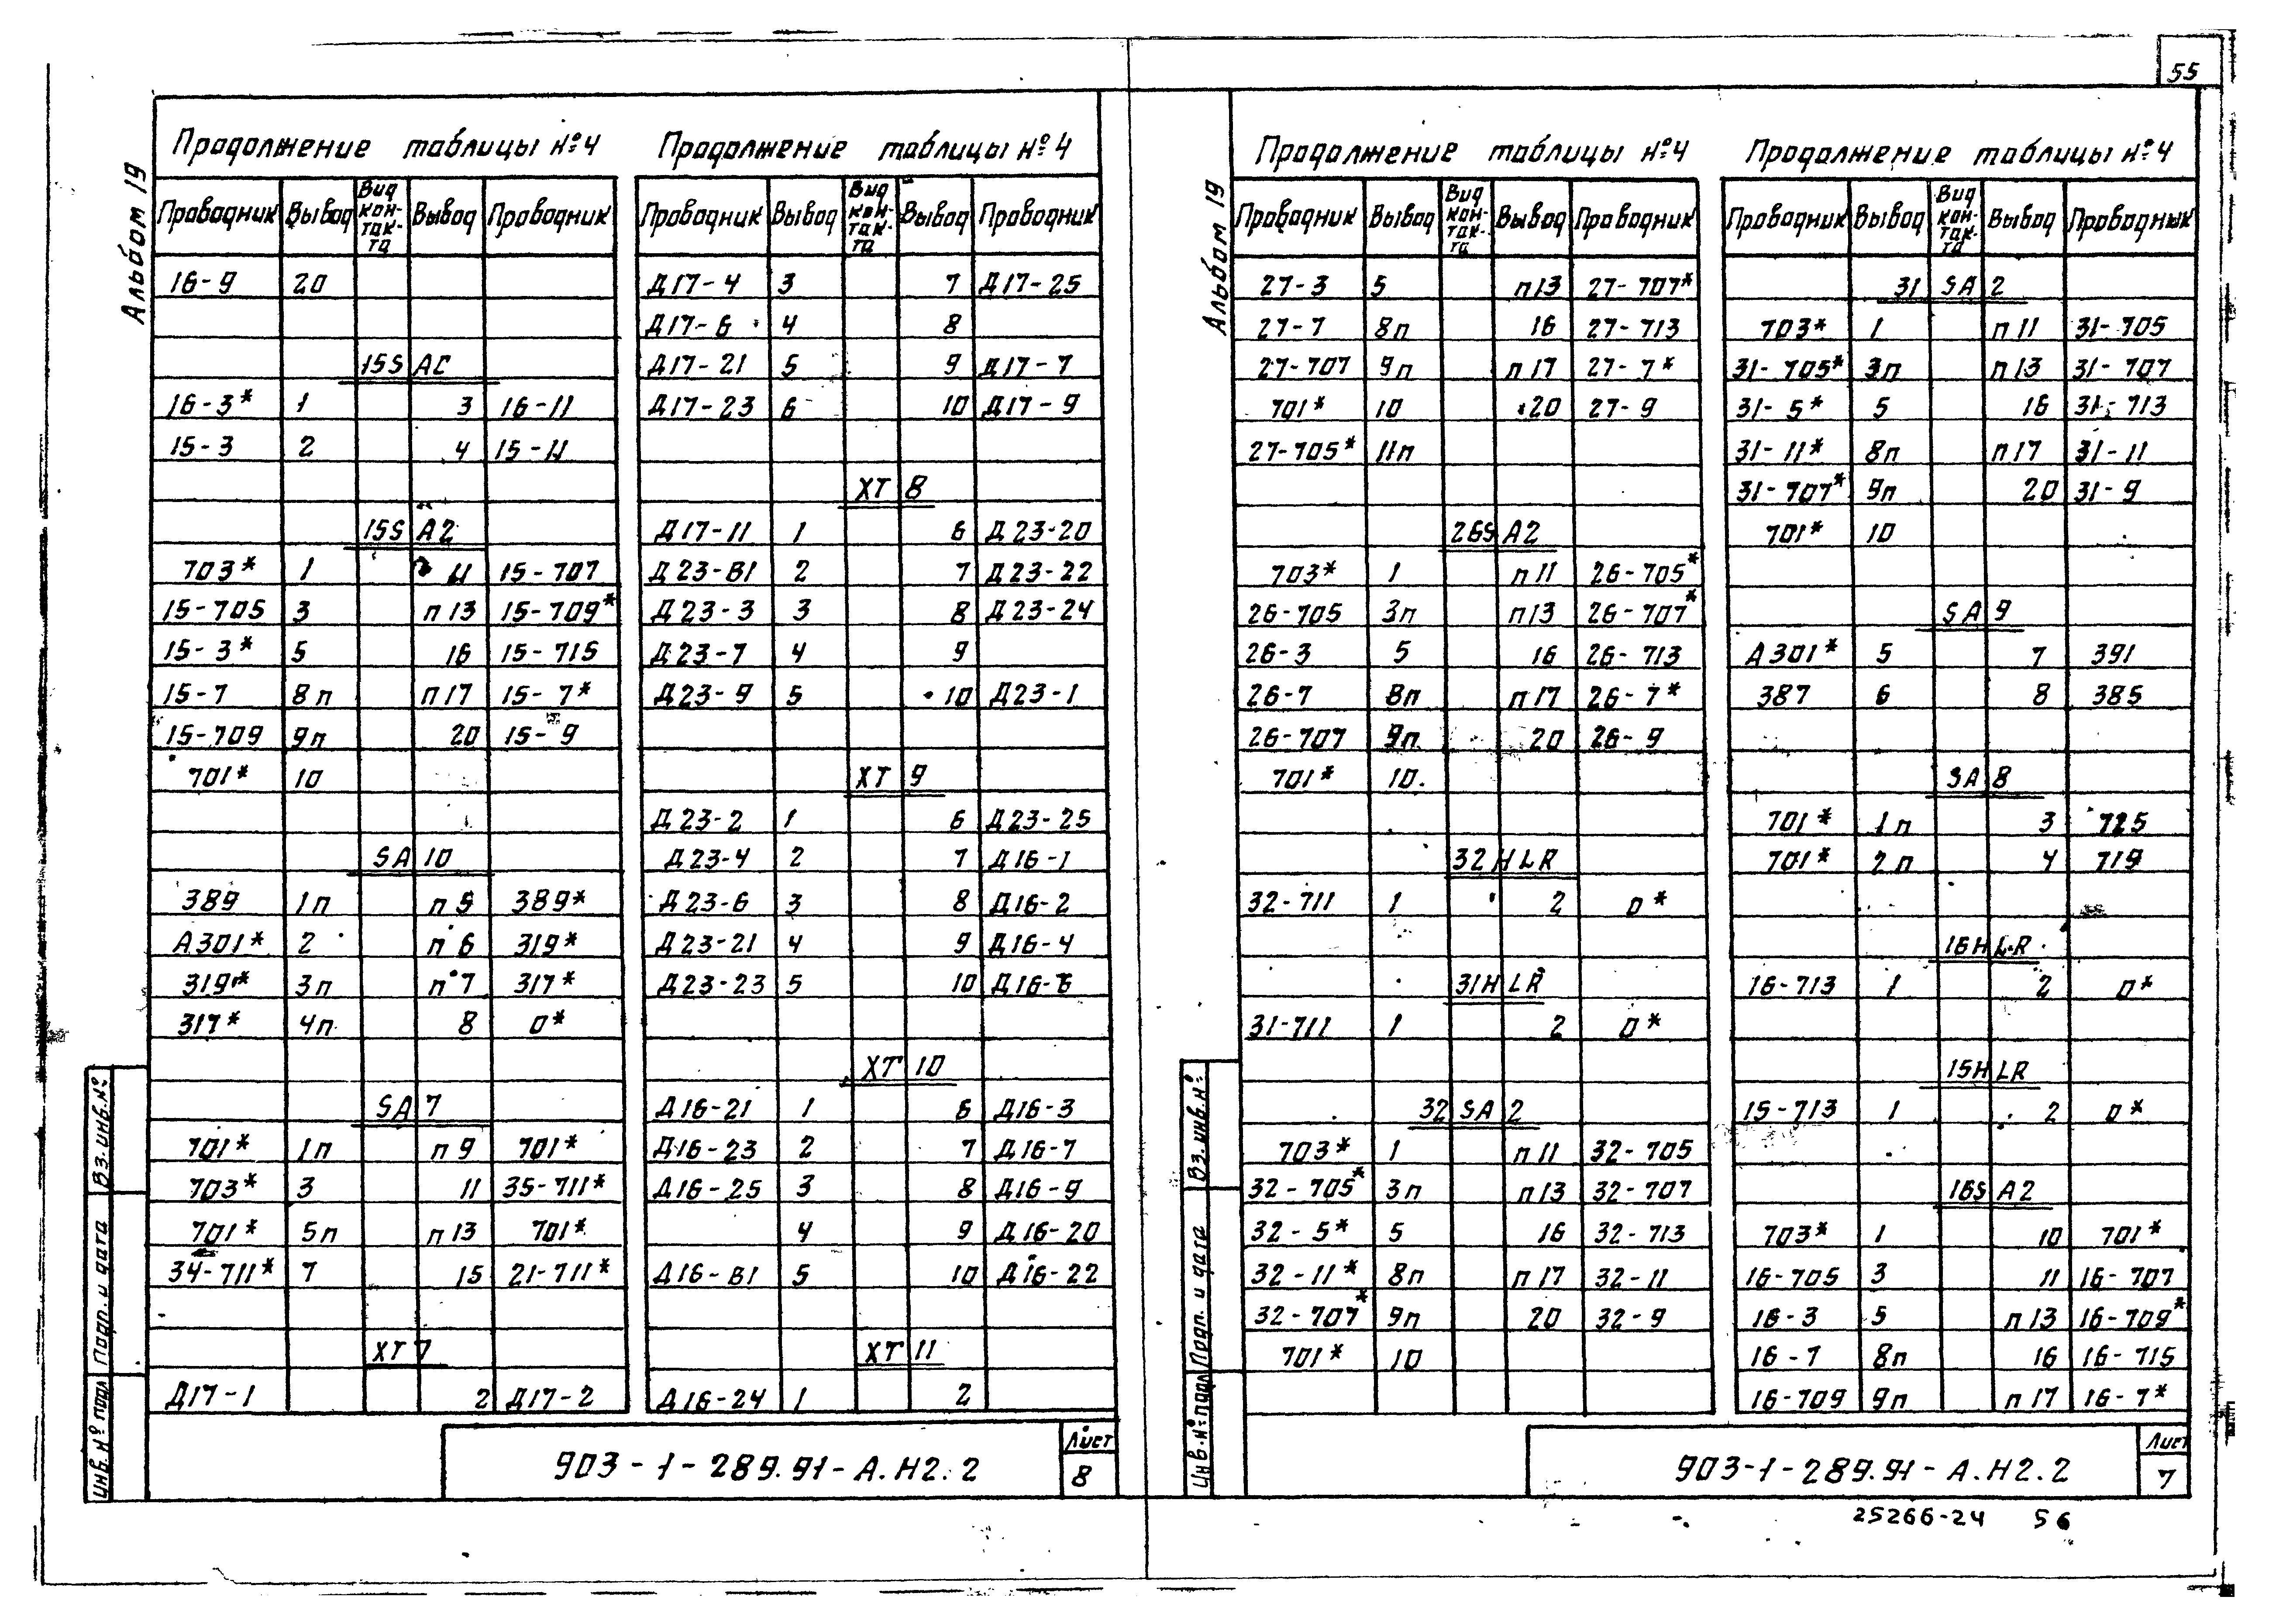 55
Альбом 19
Продолжение таблицы №4
Проводник Вывод Вид контакта Вывод Проводник
16-9 20
15S AC
16-3* 1 3 16-11
15-3 2 4 15-11
15S A2
703* 1 11 15-707
15-705 3 п13 15-709*
15-3* 5 16 15-715
15-7 8п п17 15-7*
15-709 9п 20 15-9
701* 10
SA 10
389 1п п5 389*
А301* 2 п6 319*
319* 3п п7 317*
317* 4п 8 0*
SA 7
701* 1п п9 701*
703* 3 11 35-711*
701* 5п п13 701*
34-711* 7 15 21-711*
XT 7
Д17-1 2 Д17-2
Продолжение таблицы №4
Проводник Вывод Вид контакта Вывод Проводник
Д17-4 3 7 Д17-25
Д17-6 4 8
Д17-21 5 9 Д17-7
Д17-23 6 10 Д17-9
XT 8
Д17-11 1 6 Д23-20
Д23-В1 2 7 Д23-22
Д23-3 3 8 Д23-24
Д23-7 4 9
Д23-9 5 10 Д23-1
XT 9
Д23-2 1 6 Д23-25
Д23-4 2 7 Д16-1
Д23-6 3 8 Д16-2
Д23-21 4 9 Д16-4
Д23-23 5 10 Д16-6
XT 10
Д16-21 1 6 Д16-3
Д16-23 2 7 Д16-7
Д16-25 3 8 Д16-9
4 9 Д16-20
Д16-В1 5 10 Д16-22
XT 11
Д16-24 1 2
Инв.№ подл Подп. и дата Вз.инв.№
903-1-289.91-А.Н2.2
Лист
8
Альбом 19
Продолжение таблицы №4
Проводник Вывод Вид контакта Вывод Проводник
27-3 5 п13 27-707*
27-7 8п 16 27-713
27-707 9п п17 27-7*
701* 10 20 27-9
27-705* 11п
26S A2
703* 1 п11 26-705*
26-705 3п п13 26-707*
26-3 5 16 26-713
26-7 8п п17 26-7*
26-707 9п 20 26-9
701* 10
32 HLR
32-711 1 2 0*
31H LR
31-711 1 2 0*
32 SA 2
703* 1 п11 32-705
32-705* 3п п13 32-707
32-5* 5 16 32-713
32-11* 8п п17 32-11
32-707* 9п 20 32-9
701* 10
Продолжение таблицы №4
Проводник Вывод Вид контакта Вывод Проводник
31 SA 2
703* 1 п11 31-705
31-705* 3п п13 31-707
31-5* 5 16 31-713
31-11* 8п п17 31-11
31-707* 9п 20 31-9
701* 10
SA 9
А301* 5 7 391
387 6 8 385
SA 8
701* 1п 3 725
701* 2п 4 719
16H LR
16-713 1 2 0*
15H LR
15-713 1 2 0*
16S A2
703* 1 10 701*
16-705 3 11 16-707
16-3 5 п13 16-709*
16-7 8п 16 16-715
16-709 9п п17 16-7*
Инв.№ подл Подп. и дата Вз.инв.№
903-1-289.91-А.Н2.2
Лист
7
25266-24 56